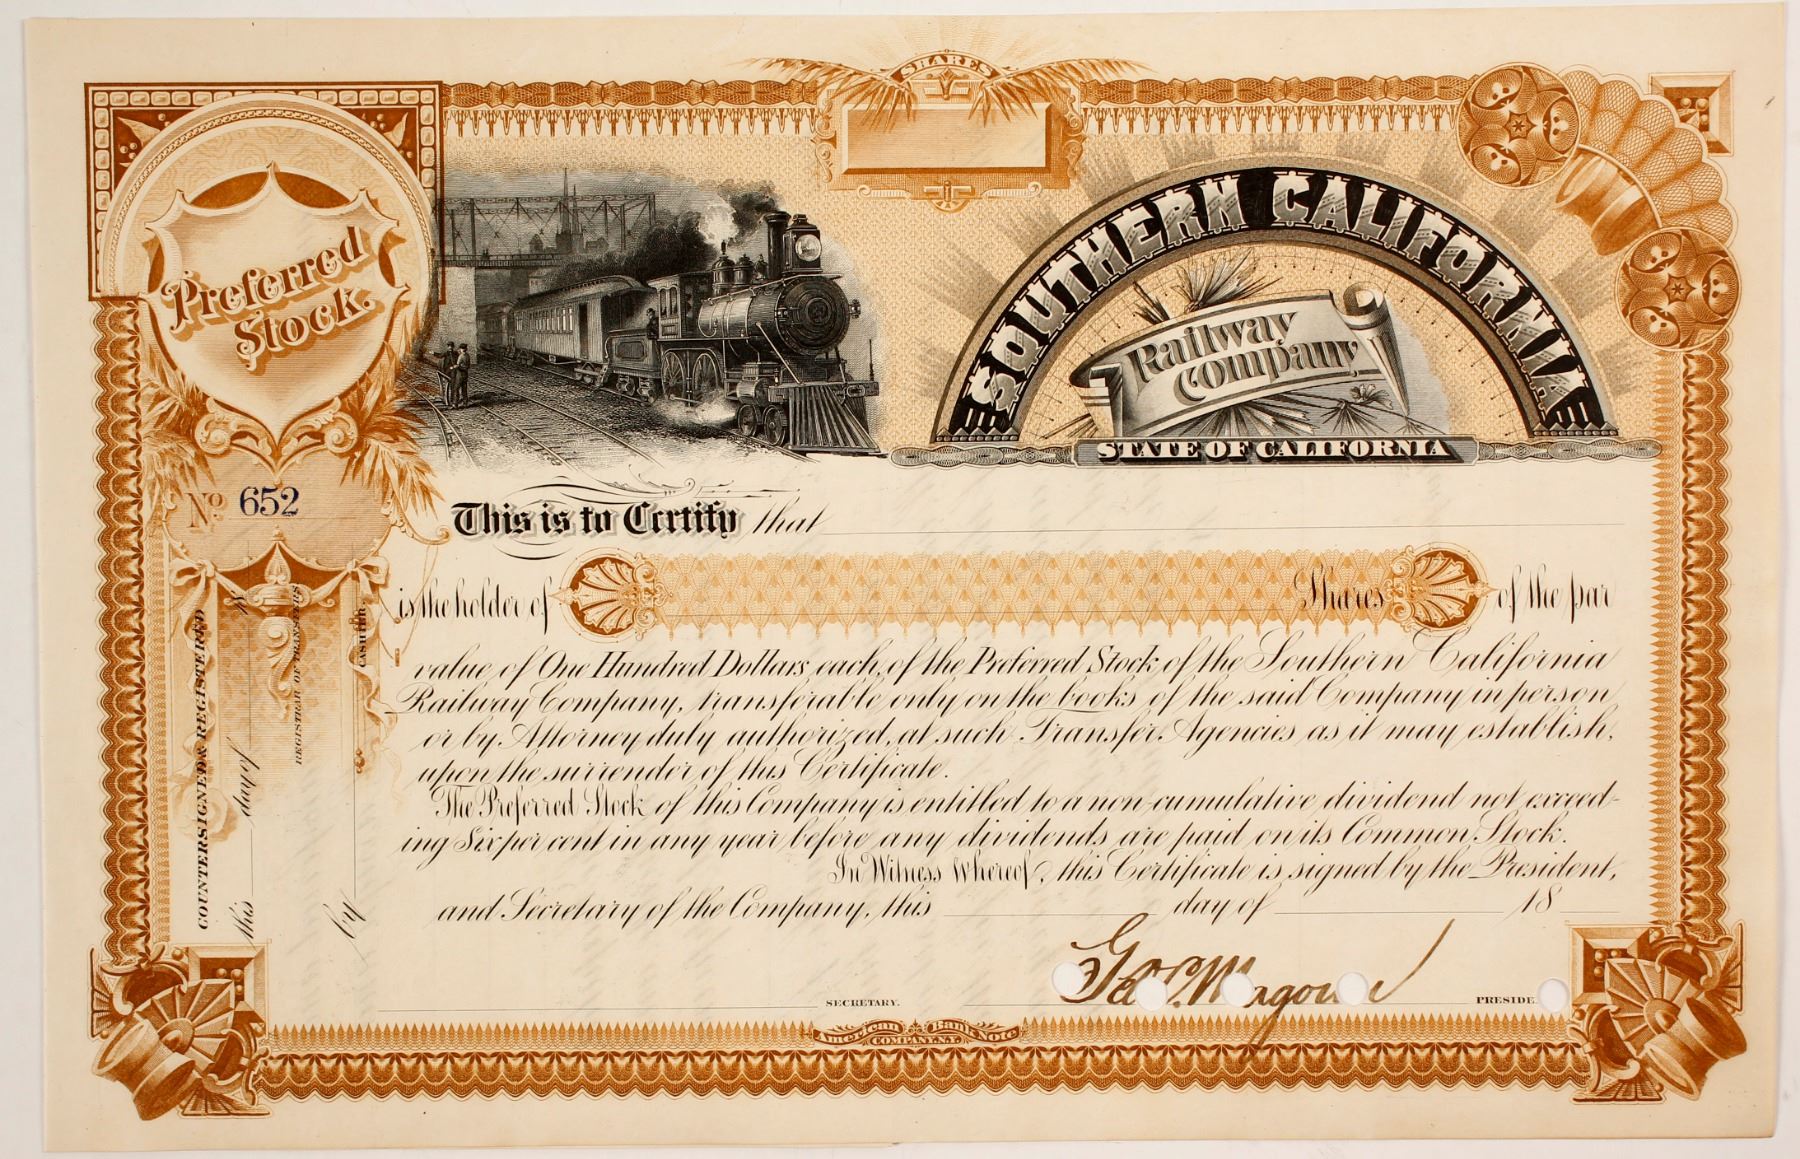 SHARES
Preferred
Stock.
SOUTHERN CALIFORNIA
Railway
Company
STATE OF CALIFORNIA
No 652
This is to Certify that
is the holder of Shares of the par
value of One Hundred Dollars each, of the Preferred Stock of the Southern California
Railway Company, transferable only on the books of the said Company in person
or by Attorney duly authorized, at such Transfer Agencies as it may establish,
upon the surrender of this Certificate.
The Preferred Stock of this Company is entitled to a non-cumulative dividend not exceed-
ing Six per cent in any year before any dividends are paid on its Common Stock.
In Witness Whereof, this Certificate is signed by the President,
and Secretary of the Company, this day of 18
Geo. C. Magoun
SECRETARY. PRESIDE
American Bank Note
COMPANY, N.Y.
COUNTERSIGNED & REGISTERED
this day of 18
REGISTRAR OF TRANSFERS
by CASHIER